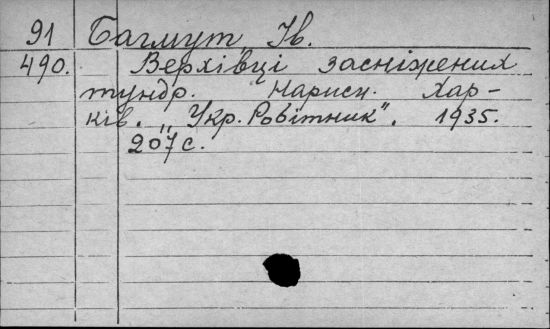 91 Багмут Ів.
490. Верхівці засніжених
тундр. Нариси. Хар-
ків. „Укр. Робітник". 1935.
207 с.